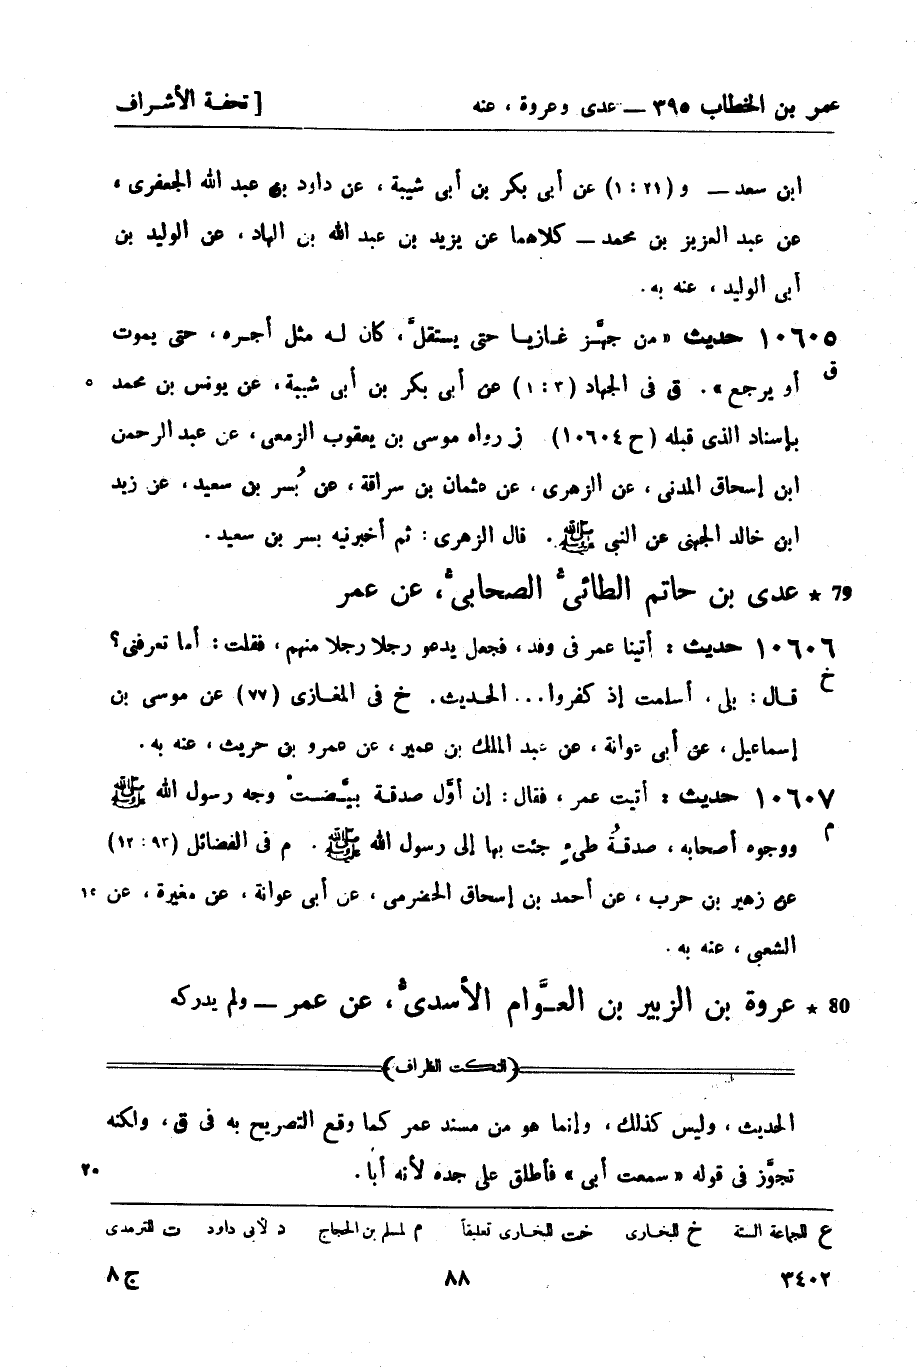 عمر بن الخطاب ٣٩٥ — عدى وعروة ، عنه [ تحفة الأشراف
ابن سعد — و (٢١ : ١) عن أبى بكر بن أبى شيبة ، عن داود بن عبد الله الجعفرى ،
عن عبد العزيز بن محمد — كلاهما عن يزيد بن عبد الله بن الهاد ، عن الوليد بن
أبى الوليد ، عنه به .
١٠٦٠٥ حديث « من جهَّز غازيا حتى يستقلَّ ، كان له مثل أجره ، حتى يموت
ق
أو يرجع » . ق فى الجهاد (٣ : ١) عن أبى بكر بن أبى شيبة ، عن يونس بن محمد ٥
بإسناد الذى قبله (ح ١٠٦٠٤) ز رواه موسى بن يعقوب الزمعى ، عن عبد الرحمن
ابن إسحاق المدنى ، عن الزهرى ، عن عثمان بن سراقة ، عن بُسر بن سعيد ، عن زيد
ابن خالد الجهنى عن النبى ﷺ . قال الزهرى : ثم أخبرنيه بسر بن سعيد .
79 * عدى بن حاتم الطائىّ الصحابىّ ، عن عمر
١٠٦٠٦ حديث : أتينا عمر فى وفد ، فجعل يدعو رجلا رجلا منهم ، فقلت : أما تعرفنى ؟
خ
قال : بلى ، أسلمت إذ كفروا ... الحديث . خ فى المغازى (٧٧) عن موسى بن
إسماعيل ، عن أبى عوانة ، عن عبد الملك بن عمير ، عن عمرو بن حريث ، عنه به .
١٠٦٠٧ حديث : أتيت عمر ، فقال : إن أوَّل صدقة بيَّضتْ وجه رسول الله ﷺ
م
ووجوه أصحابه ، صدقةُ طىءٍ جئت بها إلى رسول الله ﷺ . م فى الفضائل (٩٣ : ١٢)
عن زهير بن حرب ، عن أحمد بن إسحاق الحضرمى ، عن أبى عوانة ، عن مغيرة ، عن
الشعبى ، عنه به .
80 * عروة بن الزبير بن العوَّام الأسدىّ ، عن عمر — ولم يدركه
(النكت الظراف)
الحديث ، وليس كذلك ، وإنما هو من مسند عمر كما وقع التصريح به فى ق ، ولكنه
تجوَّز فى قوله « سمعت أبى » فأطلق على جده لأنه أبا . ٢٠
ع للجماعة الستة خ للبخارى خت للبخارى تعليقاً م لمسلم بن الحجاج د لأبى داود ت للترمذى
٣٤٠٢ ٨٨ ج ٨